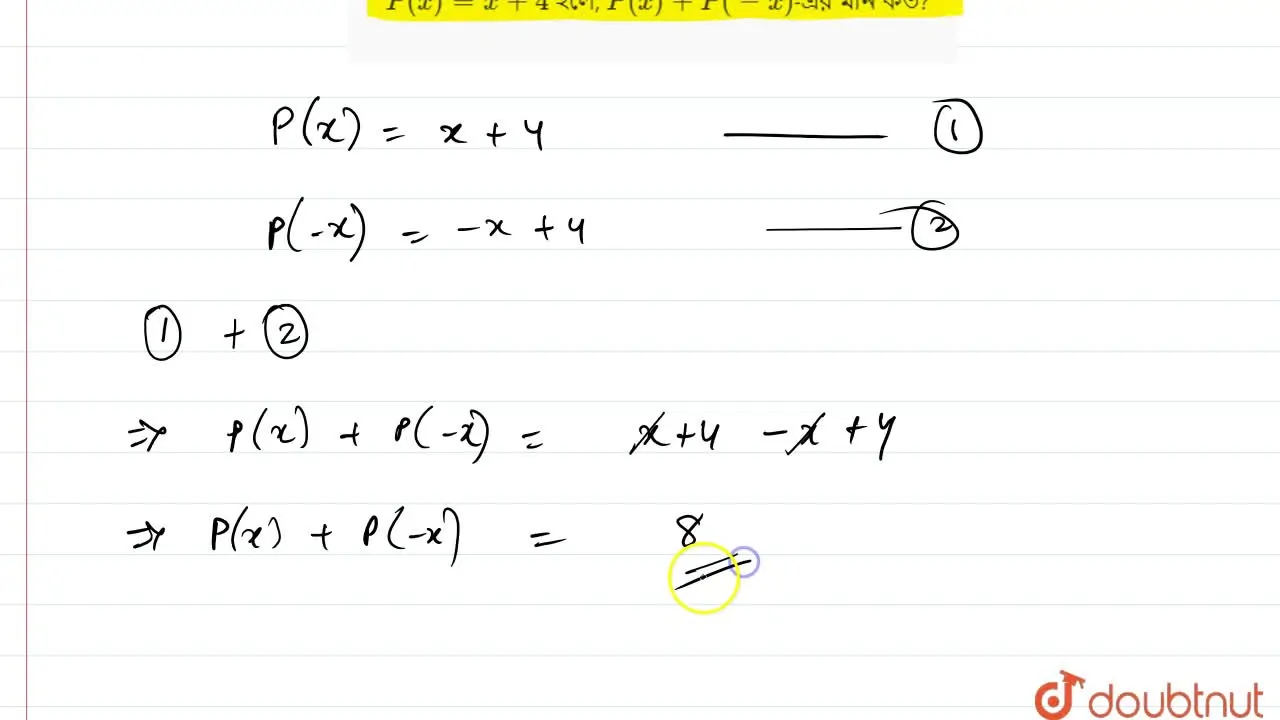 P(x) = x + 4 হলে, P(x) + P(−x)-এর মান কত?
P(x) = x + 4 ——— ①
P(-x) = -x + 4 ——— ②
① + ②
⇒ P(x) + P(-x) = x + 4 - x + 4
⇒ P(x) + P(-x) = 8
doubtnut